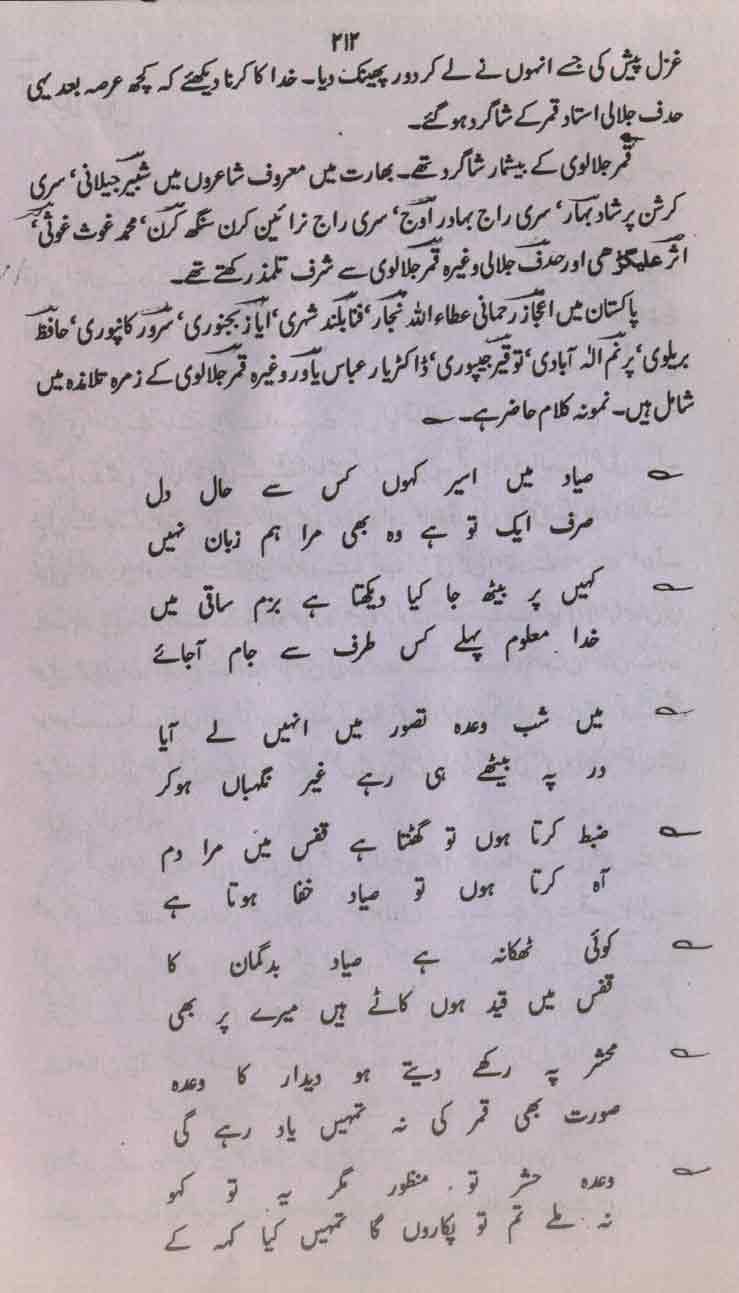 ۲۱۲
غزل پیش کی جسے انہوں نے لے کر دور پھینک دیا۔ خدا کا کرنا دیکھئے کہ کچھ عرصہ بعد یہی
حدف جلالی استاد قمر کے شاگرد ہو گئے۔
قمر جلالوی کے بیشمار شاگرد تھے۔ بھارت میں معروف شاعروں میں شبیر جیلانی‘ سری
کرشن پرشاد بہار‘ سری راج بہادر اوج‘ سری راج نرائین کرن سنگھ کرن‘ محمد غوث غوثی‘
اثر علیگڑھی اور حدف جلالی وغیرہ قمر جلالوی سے شرف تلمذ رکھتے تھے۔
پاکستان میں اعجاز رحمانی عطاء اللہ نجار‘ فنا بلند شہری‘ ایاز بجنوری‘ سرور کانپوری‘ حافظ
بریلوی‘ پرنم الہ آبادی‘ توقیر جیپوری‘ ڈاکٹر یار عباس یاور وغیرہ قمر جلالوی کے زمرہ تلامذہ میں
شامل ہیں۔ نمونہ کلام حاضر ہے۔
صیاد میں اسیر کہوں کس سے حال دل
صرف ایک تو ہے وہ بھی مرا ہم زبان نہیں
کہیں پر بیٹھ جا کیا دیکھتا ہے بزم ساقی میں
خدا معلوم پہلے کس طرف سے جام آجائے
میں شب وعدہ تصور میں انہیں لے آیا
در پہ بیٹھے ہی رہے غیر نگہباں ہوکر
ضبط کرتا ہوں تو گھٹتا ہے قفس میں مرا دم
آہ کرتا ہوں تو صیاد خفا ہوتا ہے
کوئی ٹھکانہ ہے صیاد بدگمان کا
قفس میں قید ہوں کاٹے ہیں میرے پر بھی
محشر پہ رکھے دیتے ہو دیدار کا وعدہ
صورت بھی قمر کی نہ تمہیں یاد رہے گی
وعدہ حشر تو منظور مگر یہ تو کہو
نہ ملے تم تو پکاروں گا تمہیں کیا کہہ کے